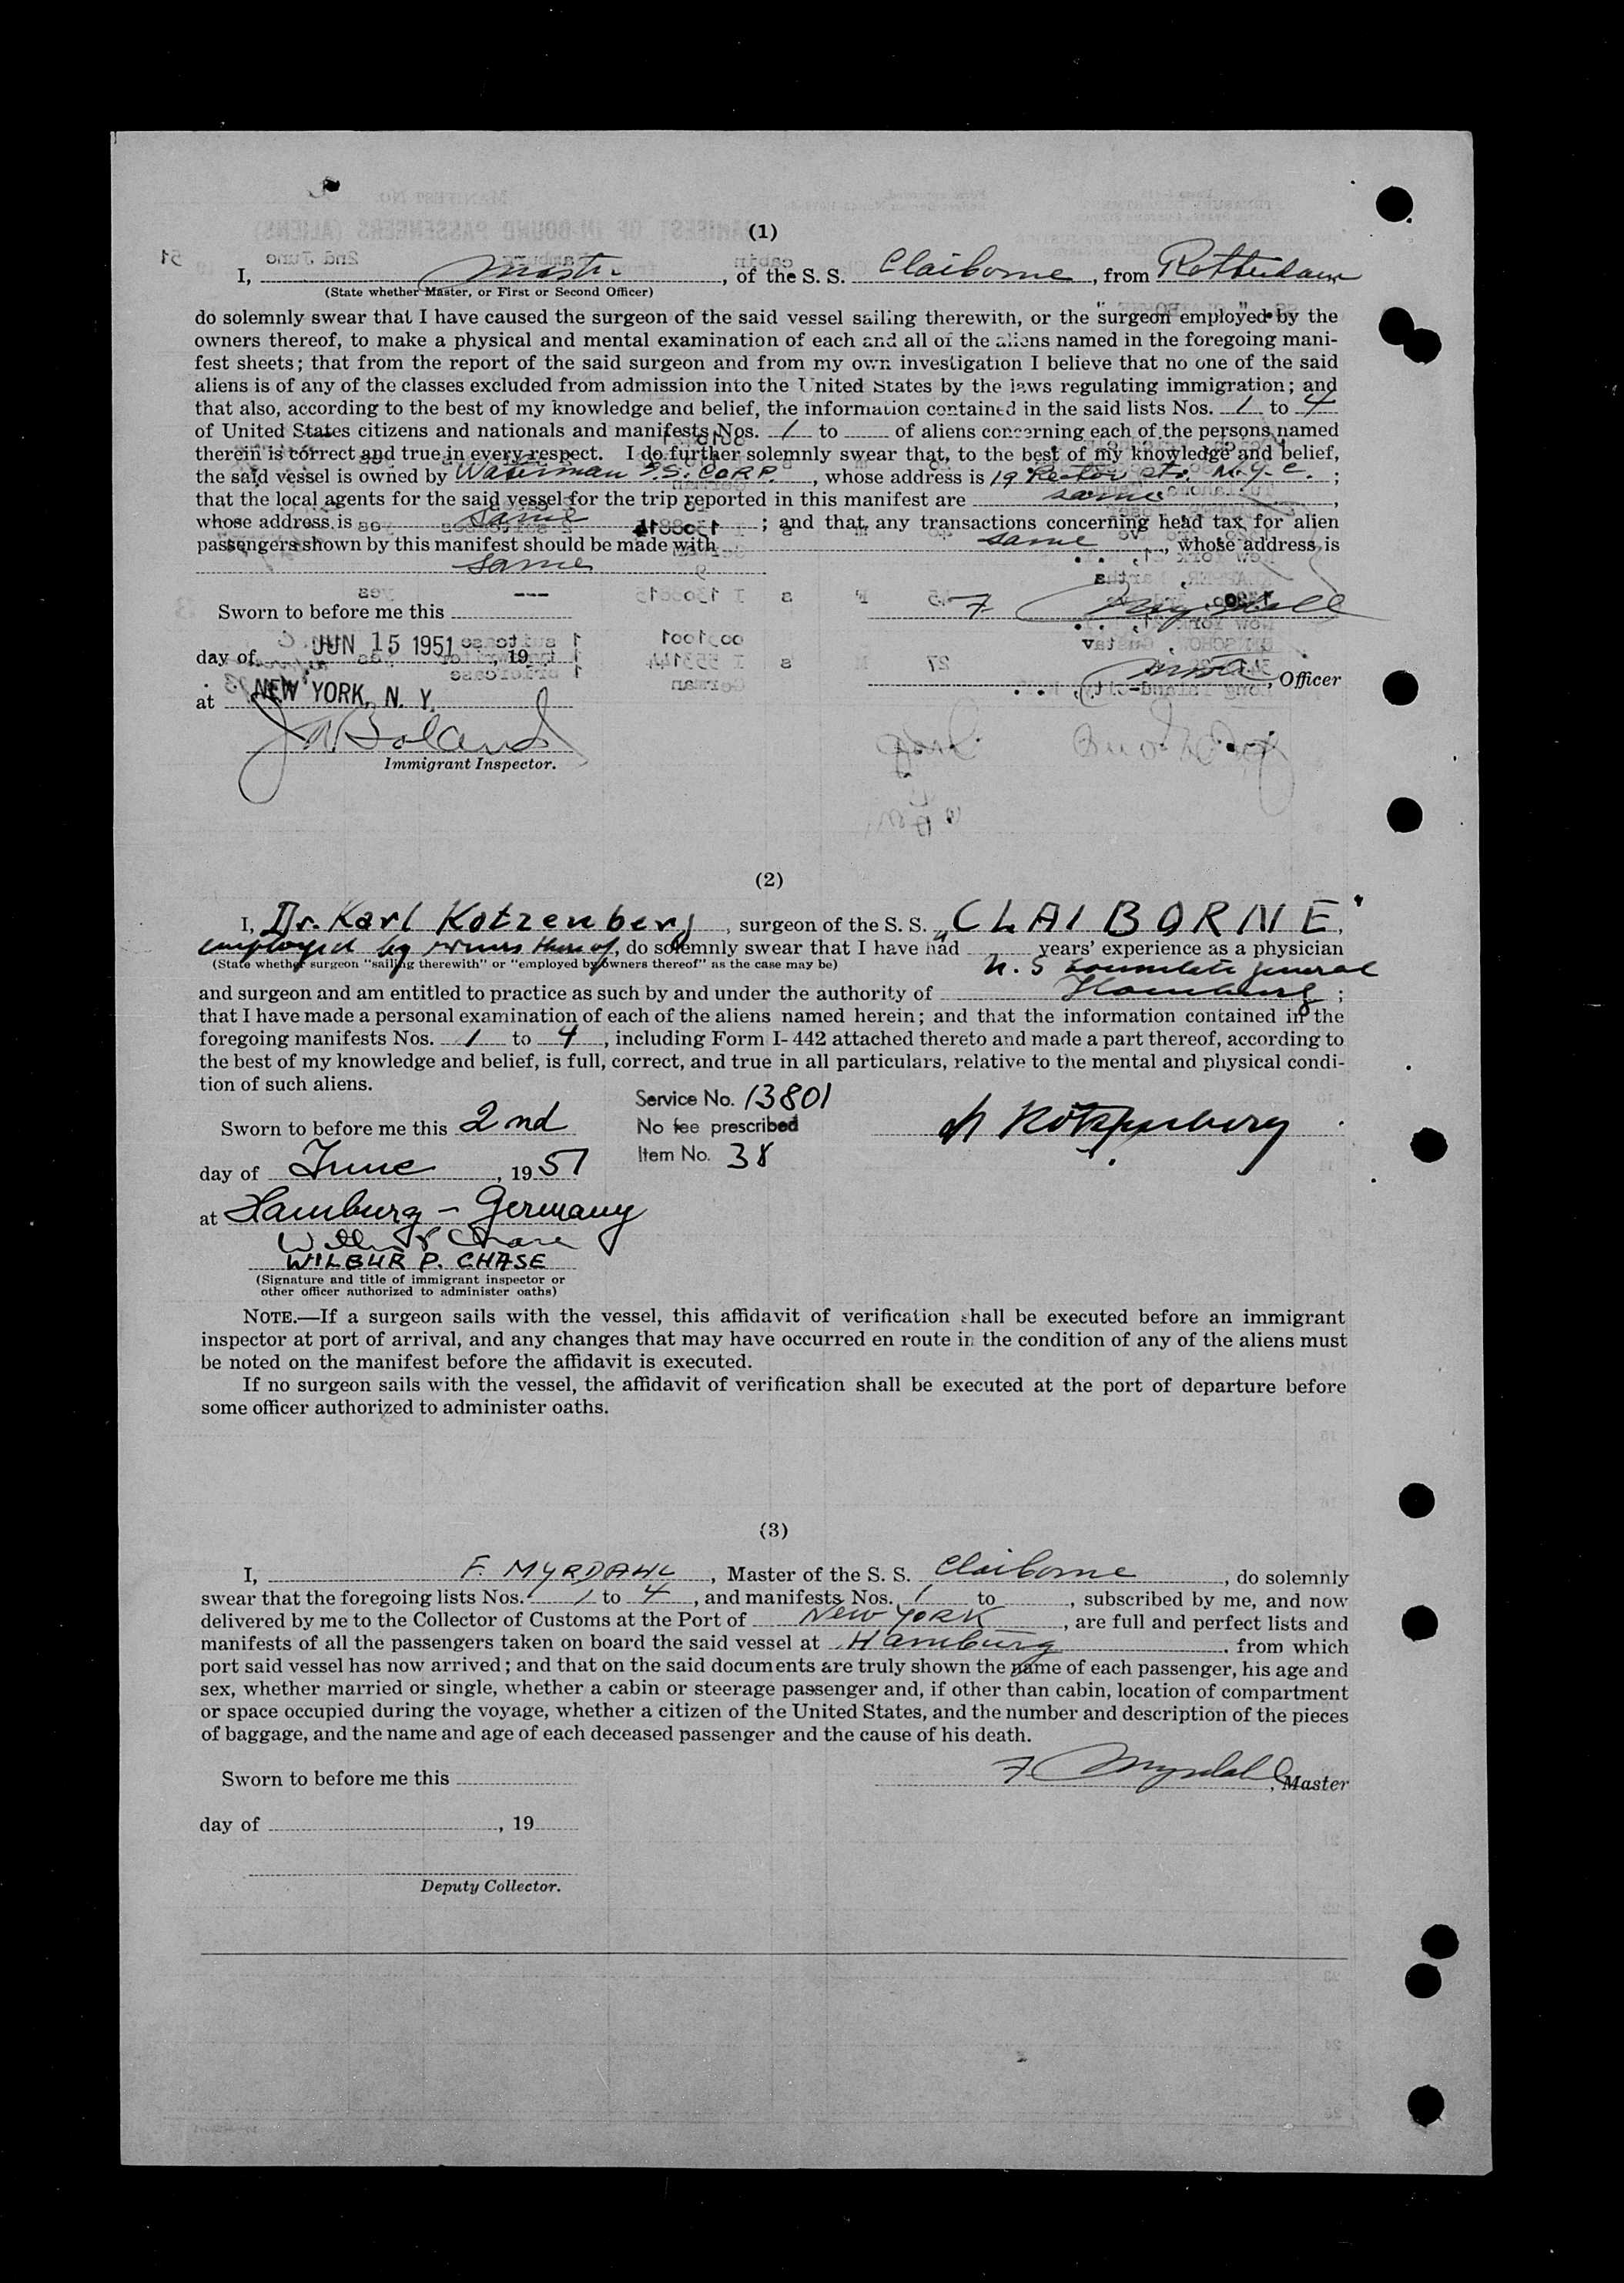 (1)
I, Master, of the S. S. Claiborne, from Rotterdam
(State whether Master, or First or Second Officer)
do solemnly swear that I have caused the surgeon of the said vessel sailing therewith, or the surgeon employed by the
owners thereof, to make a physical and mental examination of each and all of the aliens named in the foregoing mani-
fest sheets; that from the report of the said surgeon and from my own investigation I believe that no one of the said
aliens is of any of the classes excluded from admission into the United States by the laws regulating immigration; and
that also, according to the best of my knowledge and belief, the information contained in the said lists Nos. 1 to 4
of United States citizens and nationals and manifests Nos. 1 to of aliens concerning each of the persons named
therein is correct and true in every respect. I do further solemnly swear that, to the best of my knowledge and belief,
the said vessel is owned by Waterman S.S. CORP., whose address is 19 Rector St. N.Y.C. ;
that the local agents for the said vessel for the trip reported in this manifest are same,
whose address is same ; and that any transactions concerning head tax for alien
passengers shown by this manifest should be made with same, whose address is
same
Sworn to before me this
F Myrdahl
day of JUN 15 1951, 19
Master, Officer
at NEW YORK, N. Y.
J A Boland
Immigrant Inspector.
(2)
I, Dr. Karl Kotzenberg, surgeon of the S. S. „CLAIBORNE"
employed by owners thereof, do solemnly swear that I have had years' experience as a physician
(State whether surgeon "sailing therewith" or "employed by owners thereof" as the case may be)
U. S Consulate General
and surgeon and am entitled to practice as such by and under the authority of Hamburg ;
that I have made a personal examination of each of the aliens named herein; and that the information contained in the
foregoing manifests Nos. 1 to 4, including Form I-442 attached thereto and made a part thereof, according to
the best of my knowledge and belief, is full, correct, and true in all particulars, relative to the mental and physical condi-
tion of such aliens.
Service No. 13801
Sworn to before me this 2nd
No fee prescribed
Kotzenberg
Item No. 38
day of June, 1951
at Hamburg - Germany
Wilbur P Chase
WILBUR P. CHASE
(Signature and title of immigrant inspector or
other officer authorized to administer oaths)
NOTE.—If a surgeon sails with the vessel, this affidavit of verification shall be executed before an immigrant
inspector at port of arrival, and any changes that may have occurred en route in the condition of any of the aliens must
be noted on the manifest before the affidavit is executed.
If no surgeon sails with the vessel, the affidavit of verification shall be executed at the port of departure before
some officer authorized to administer oaths.
(3)
I, F. MYRDAHL, Master of the S. S. Claiborne, do solemnly
swear that the foregoing lists Nos. 1 to 4, and manifests Nos. 1 to , subscribed by me, and now
delivered by me to the Collector of Customs at the Port of NEW YORK, are full and perfect lists and
manifests of all the passengers taken on board the said vessel at Hamburg, from which
port said vessel has now arrived; and that on the said documents are truly shown the name of each passenger, his age and
sex, whether married or single, whether a cabin or steerage passenger and, if other than cabin, location of compartment
or space occupied during the voyage, whether a citizen of the United States, and the number and description of the pieces
of baggage, and the name and age of each deceased passenger and the cause of his death.
Sworn to before me this
F Myrdahl, Master
day of , 19
Deputy Collector.